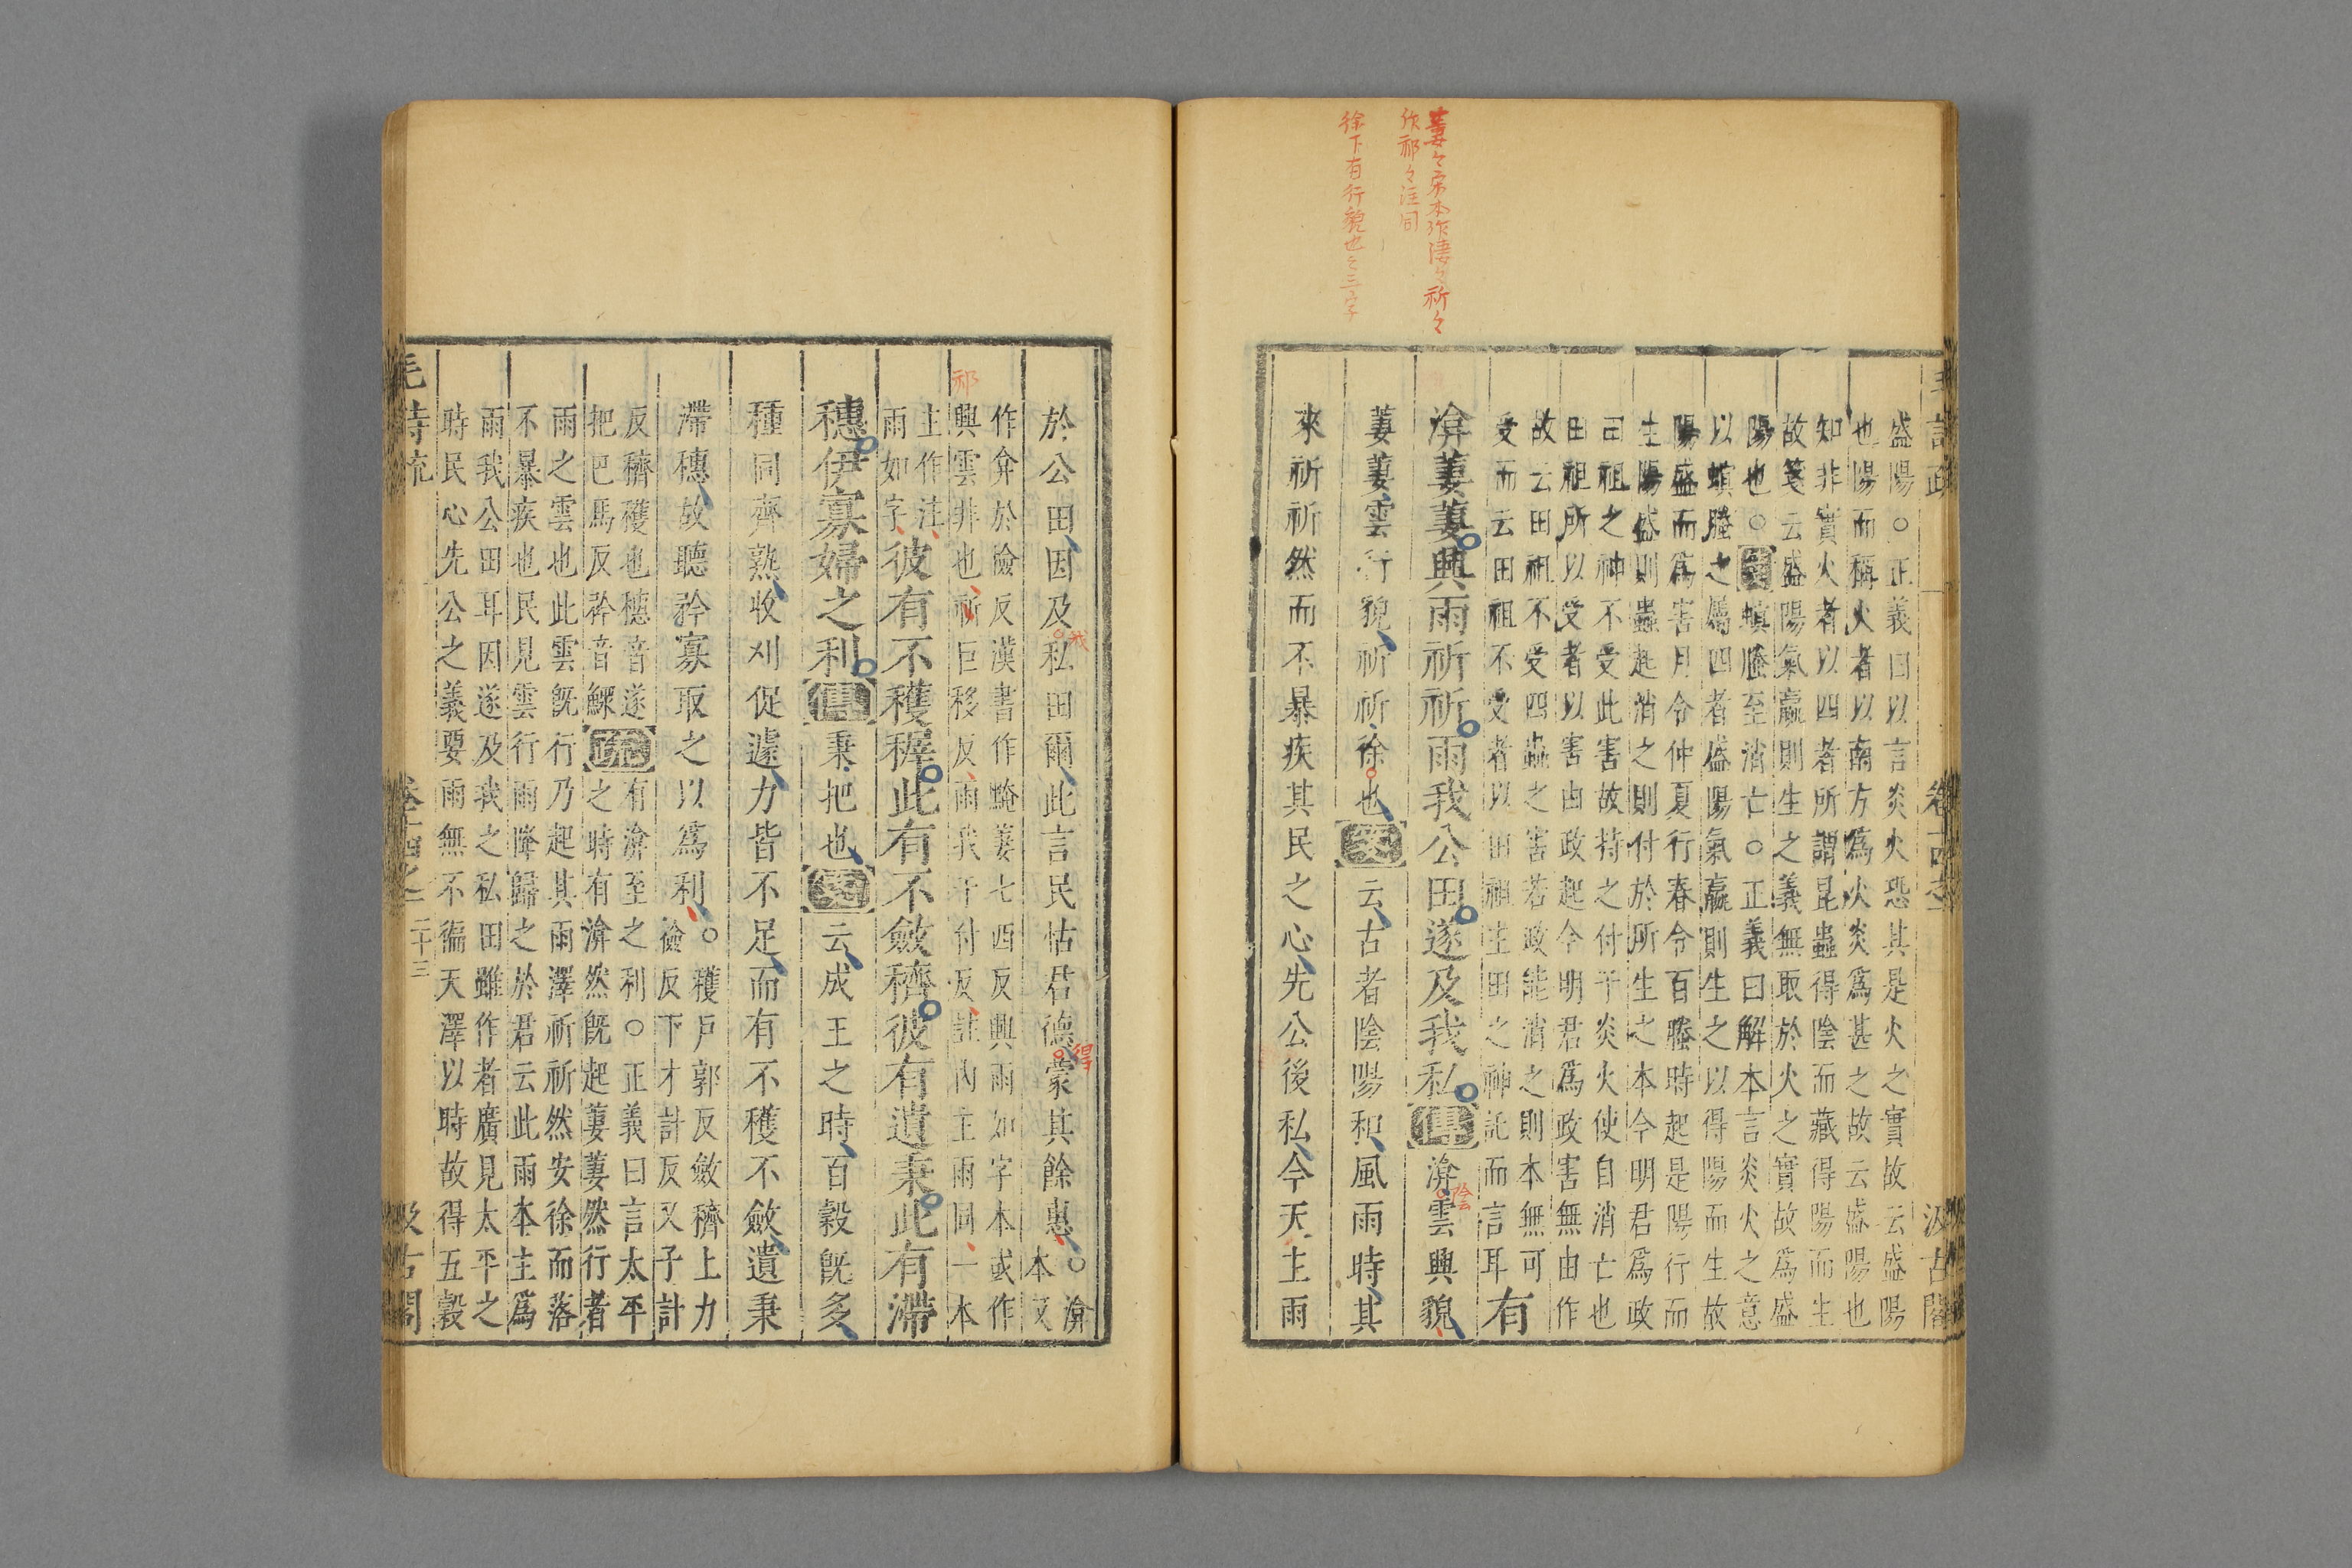 毛詩疏　卷十四之一　汲古閣
盛陽○正義曰以言炎火恐其是火之實故云盛陽
也陽而稱火者以南方爲火炎爲甚之故云盛陽也
知非實火者以四者所謂昆蟲得陰而藏得陽而生
故箋云盛陽氣贏則生之義無取於火之實故爲盛
陽也○箋螟螣至消亡○正義曰解本言炎火之意
以螟螣之屬四者盛陽氣贏則生之以得陽而生故
陽盛而爲害月令仲夏行春令百螣時起是陽行而
生陽盛則蟲起消之則付於所生之本今明君爲政
田祖之神不受此害故持之付于炎火使自消亡也
田祖所以受者以害由政起今明君爲政害無由作
故云田祖不受四蟲之害若政能消之則本無可
受而云田祖不受者以田祖主田之神託而言耳
有
渰萋萋興雨祈祈雨我公田遂及我私傳渰雲興貌
陰
萋萋雲行貌祈祈徐也箋云古者陰陽和風雨時其
來祈祈然而不暴疾其民之心先公後私今天主雨
萋々宋本作淒々祈々
作祁々注同
徐下有行貌也之三字
於公田因及私田爾此言民怙君德蒙其餘惠○渰
本又
我
得
作弇於儉反漢書作黤萋七西反興雨如字本或作
興雲非也祈巨移反雨我于付反註內主雨同一本
祁
主作注
雨如字
彼有不穫穉此有不斂穧彼有遺秉此有滯
穗伊寡婦之利傳秉把也箋云成王之時百穀旣多
種同齊熟收刈促遽力皆不足而有不穫不斂遺秉
滯穗故聽矜寡取之以爲利○穫戶郭反斂穧上力
檢反下才計反又子計
反穧穫也穗音遂
把巴馬反矜音鰥
疏
有渰至之利○正義曰言太平
之時有渰然旣起萋萋然行者
雨之雲也此雲旣行乃起其雨澤祈祈然安徐而落
不暴疾也民見雲行雨降歸之於君云此雨本主爲
雨我公田耳因遂及我之私田雖作者廣見太平之
時民心先公之義要雨無不徧天澤以時故得五穀
毛詩疏　卷十四之一　二十三　汲古閣